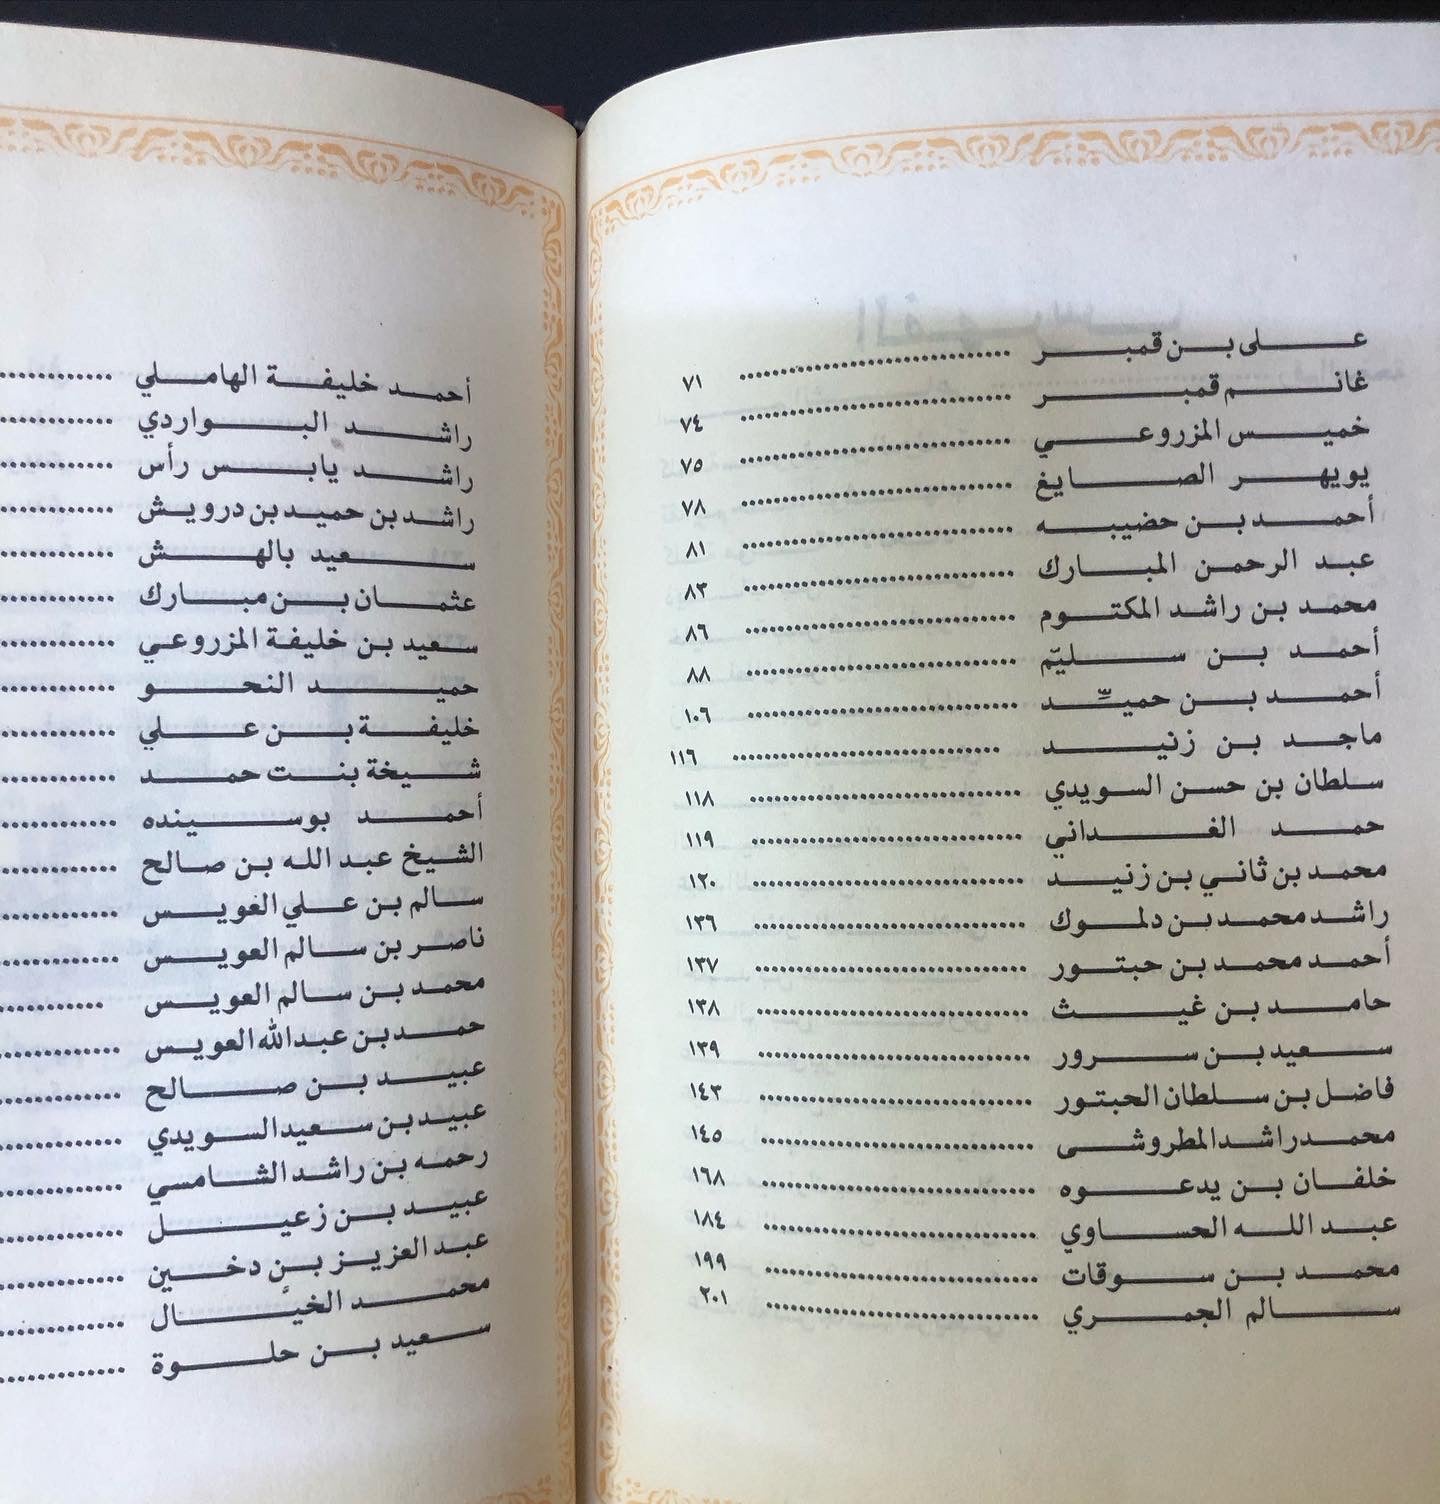 علي بن قمبر ........ ٧١
غانم قمبر ........ ٧٤
خميس المزروعي ........ ٧٥
يويهر الصايغ ........ ٧٨
أحمد بن حضيبه ........ ٨١
عبد الرحمن المبارك ........ ٨٣
محمد بن راشد المكتوم ........ ٨٦
أحمد بن سليّم ........ ٨٨
أحمد بن حميّد ........ ١٠٦
ماجد بن زنيد ........ ١١٦
سلطان بن حسن السويدي ........ ١١٨
حمد الغداني ........ ١١٩
محمد بن ثاني بن زنيد ........ ١٢٠
راشد محمد بن دلموك ........ ١٣٦
أحمد محمد بن حبتور ........ ١٣٧
حامد بن غيث ........ ١٣٨
سعيد بن سرور ........ ١٣٩
فاضل بن سلطان الحبتور ........ ١٤٣
محمد راشد المطروشى ........ ١٤٥
خلفان بن يدعوه ........ ١٦٨
عبد الله الحساوي ........ ١٨٤
محمد بن سوقات ........ ١٩٩
سالم الجمري ........ ٢٠١
أحمد خليفة الهاملي ........
راشد البواردي ........
راشد يابس رأس ........
راشد بن حميد بن درويش ........
سعيد بالهش ........
عثمان بن مبارك ........
سعيد بن خليفة المزروعي ........
حميد النحو ........
خليفة بن علي ........
شيخة بنت حمد ........
أحمد بوسينده ........
الشيخ عبد الله بن صالح ........
سالم بن علي الغويس ........
ناصر بن سالم العويس ........
محمد بن سالم العويس ........
حمد بن عبدالله العويس ........
عبيد بن صالح ........
عبيد بن سعيد السويدي ........
رحمه بن راشد الشامسي ........
عبيد بن زعيل ........
عبد العزيز بن دخين ........
محمد الخيال ........
سعيد بن حلوة ........